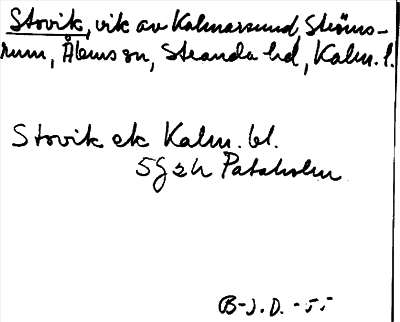 Stovik, vik av Kalmarsund, Ströms-
rum, Ålems sn, Stranda hd, Kalm. l.
Stovik ek Kalm. bl.
5G2h Pataholm
B-J. D. -55